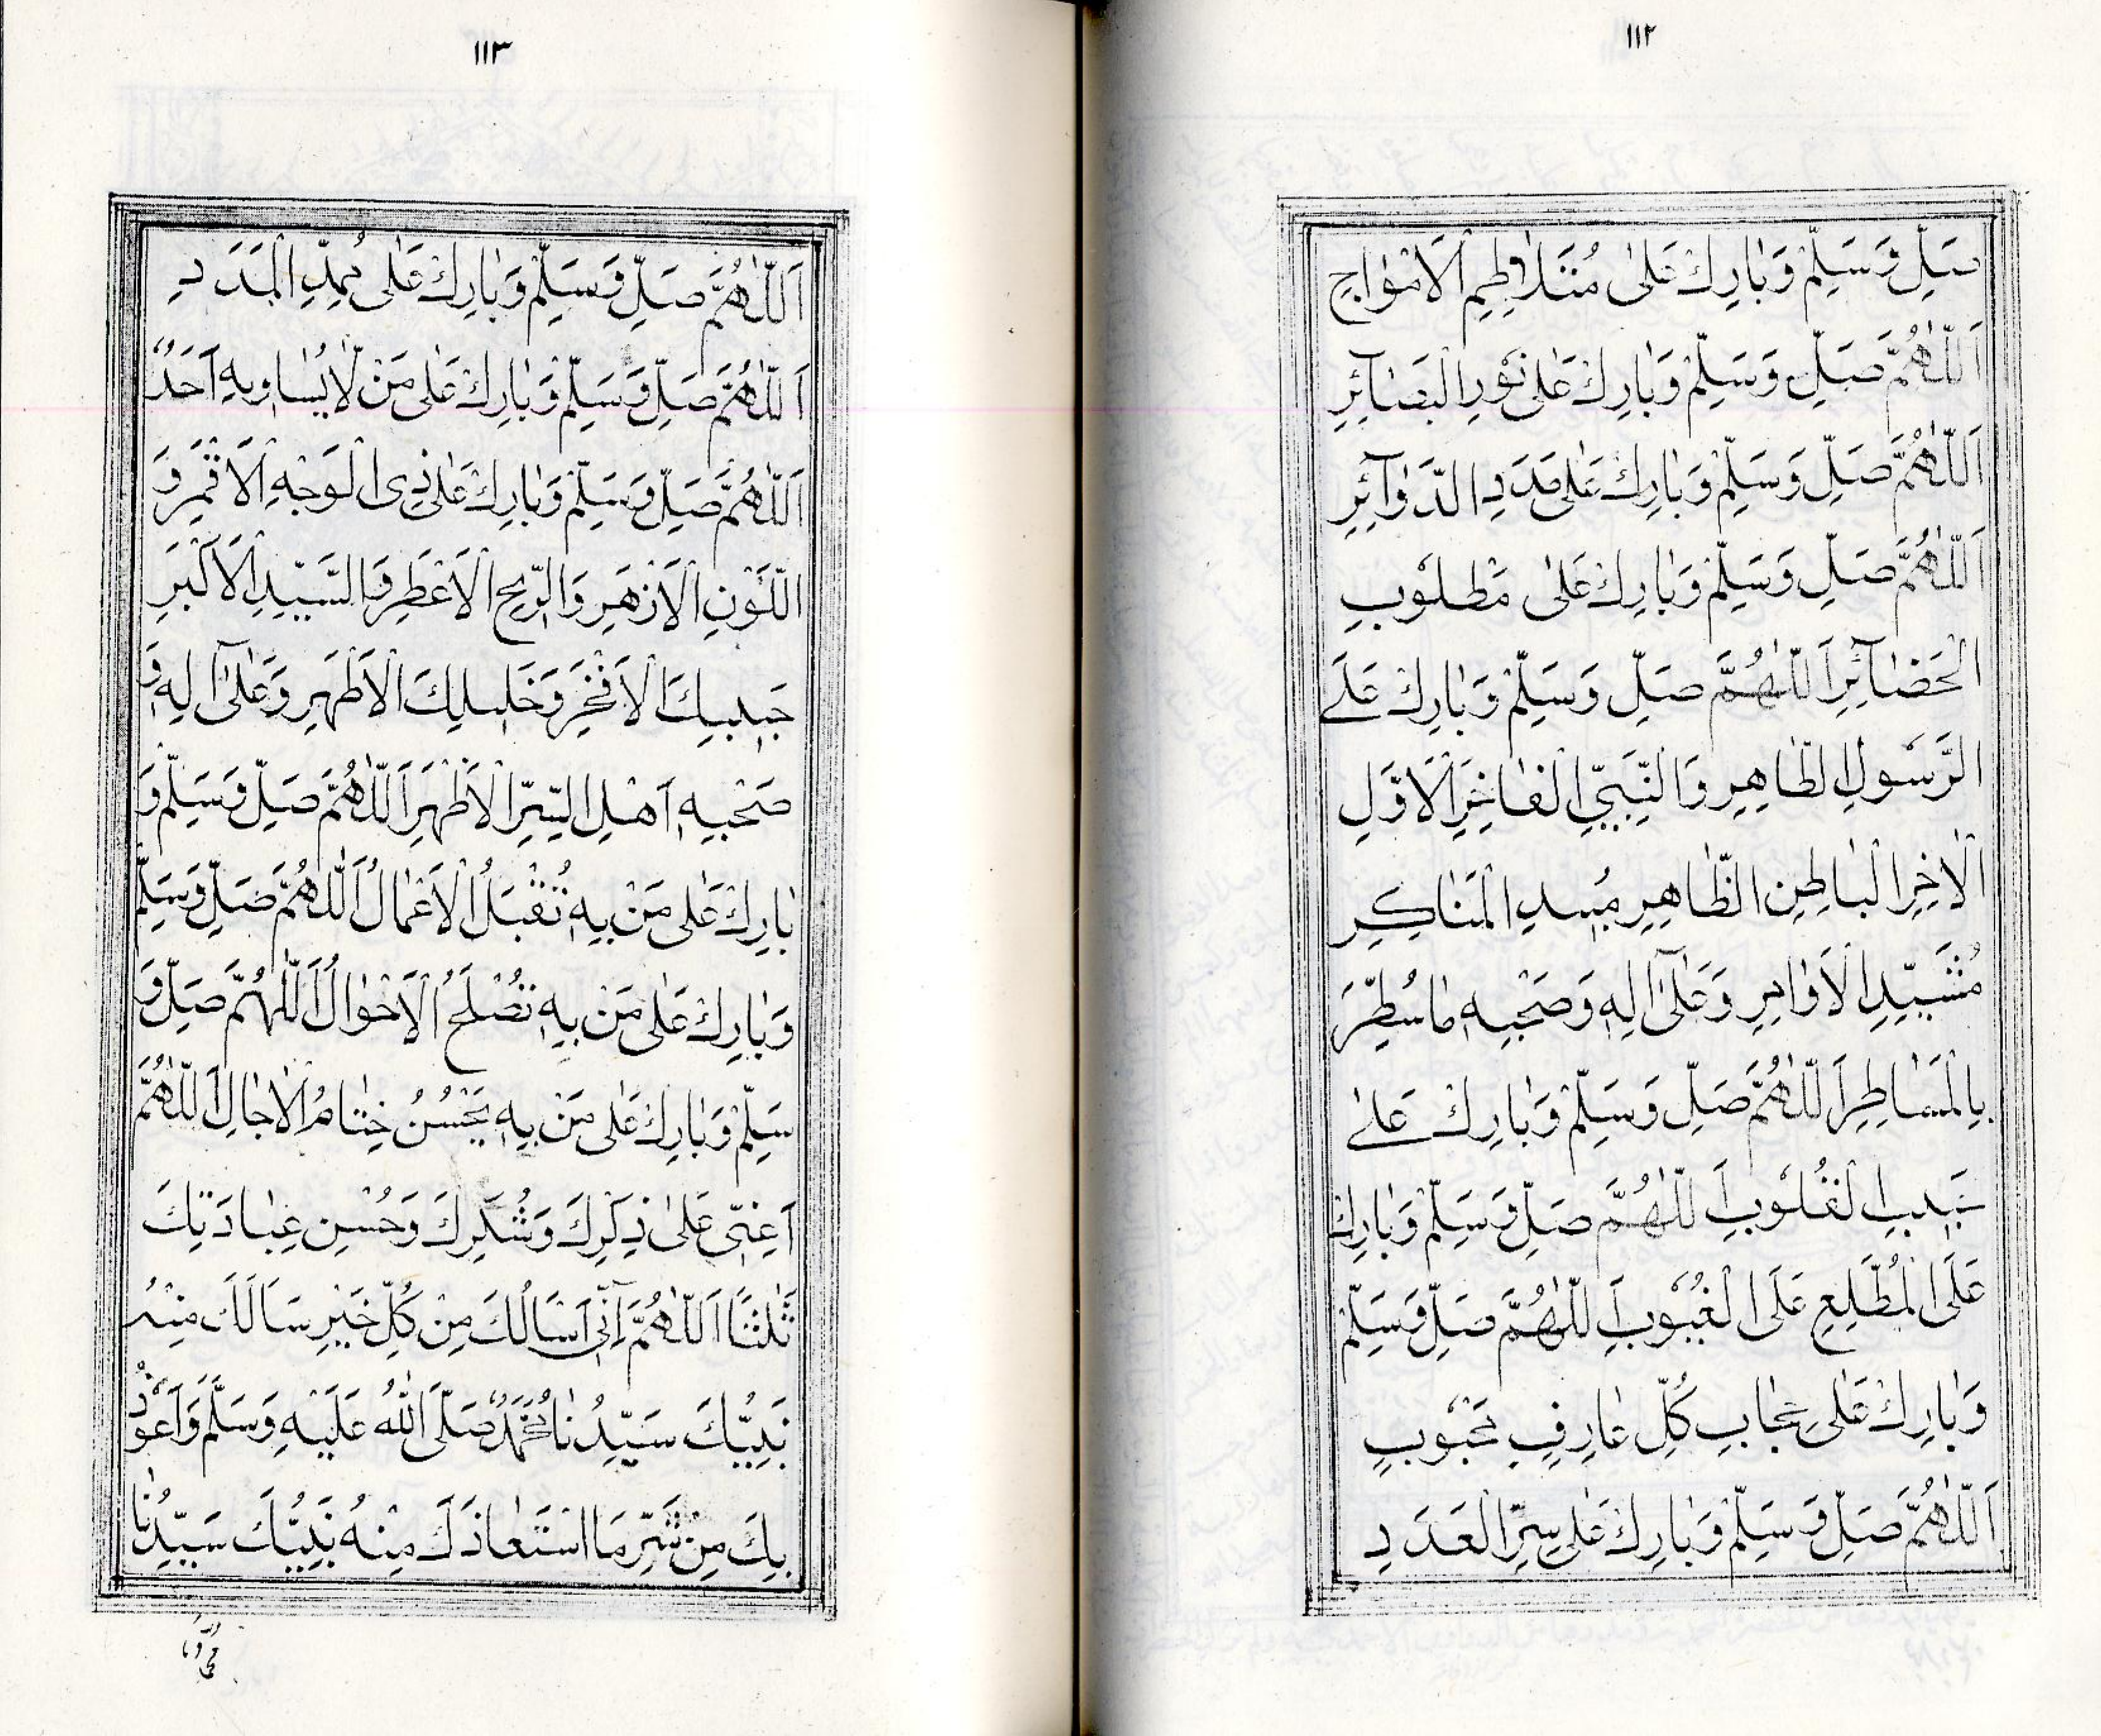 ١١٢
صَلِّ وَسَلِّمْ وَبَارِكْ عَلٰى مُتَلَاطِمِ الْاَمْوَاجِ
اَللّٰهُمَّ صَلِّ وَسَلِّمْ وَبَارِكْ عَلٰى نُورِ الْبَصَآئِرِ
اَللّٰهُمَّ صَلِّ وَسَلِّمْ وَبَارِكْ عَلٰى مَدَدِ الدَّوَآئِرِ
اَللّٰهُمَّ صَلِّ وَسَلِّمْ وَبَارِكْ عَلٰى مَطْلُوبِ
الْحَضَآئِرِ اَللّٰهُمَّ صَلِّ وَسَلِّمْ وَبَارِكْ عَلَى
الرَّسُولِ الطَّاهِرِ وَالنَّبِيِّ الْفَاخِرِ الْاَوَّلِ
الْاٰخِرِ الْبَاطِنِ الظَّاهِرِ مُبِيدِ الْمَنَاكِرِ
مُشَيِّدِ الْاَوَامِرِ وَعَلٰٓى اٰلِهٖ وَصَحْبِهٖ مَا سُطِّرَ
بِالْمَسَاطِرِ اَللّٰهُمَّ صَلِّ وَسَلِّمْ وَبَارِكْ عَلٰى
حَبِيبِ الْقُلُوبِ اَللّٰهُمَّ صَلِّ وَسَلِّمْ وَبَارِكْ
عَلَى الْمُطَّلِعِ عَلَى الْغُيُوبِ اَللّٰهُمَّ صَلِّ وَسَلِّمْ
وَبَارِكْ عَلٰى كُلِّ عَارِفٍ مَحْبُوبٍ
اَللّٰهُمَّ صَلِّ وَسَلِّمْ وَبَارِكْ عَلٰى سِرِّ الْعَدَدِ
١١٣
اَللّٰهُمَّ صَلِّ وَسَلِّمْ وَبَارِكْ عَلٰى مُمِدِّ الْمَدَدِ
اَللّٰهُمَّ صَلِّ وَسَلِّمْ وَبَارِكْ عَلٰى مَنْ لَا يُسَاوِيهِ اَحَدٌ
اَللّٰهُمَّ صَلِّ وَسَلِّمْ وَبَارِكْ عَلٰى ذِى الْوَجْهِ الْاَقْمَرِ وَ
اللَّوْنِ الْاَزْهَرِ وَالرِّيحِ الْاَعْطَرِ وَالسَّيِّدِ الْاَكْبَرِ
حَبِيبِكَ الْاَفْخَرِ وَخَلِيلِكَ الْاَطْهَرِ وَعَلٰٓى اٰلِهٖ وَ
صَحْبِهٖ اَهْلِ السِّرِّ الْاَظْهَرِ اَللّٰهُمَّ صَلِّ وَسَلِّمْ وَ
بَارِكْ عَلٰى مَنْ بِهٖ تُقْبَلُ الْاَعْمَالُ اَللّٰهُمَّ صَلِّ وَسَلِّمْ
وَبَارِكْ عَلٰى مَنْ بِهٖ تُصْلَحُ الْاَحْوَالُ اَللّٰهُمَّ صَلِّ وَ
سَلِّمْ وَبَارِكْ عَلٰى مَنْ بِهٖ يَحْسُنُ خِتَامُ الْاٰجَالِ اَللّٰهُمَّ
اَعِنِّى عَلٰى ذِكْرِكَ وَشُكْرِكَ وَحُسْنِ عِبَادَتِكَ
ثَلٰثًا اَللّٰهُمَّ اِنِّٓى اَسْاَلُكَ مِنْ كُلِّ خَيْرٍ سَاَلَكَ مِنْهُ
نَبِيُّكَ سَيِّدُنَا مُحَمَّدٌ صَلَّى اللّٰهُ عَلَيْهِ وَسَلَّمَ وَاَعُوذُ
بِكَ مِنْ شَرِّ مَا اسْتَعَاذَكَ مِنْهُ نَبِيُّكَ سَيِّدُنَا